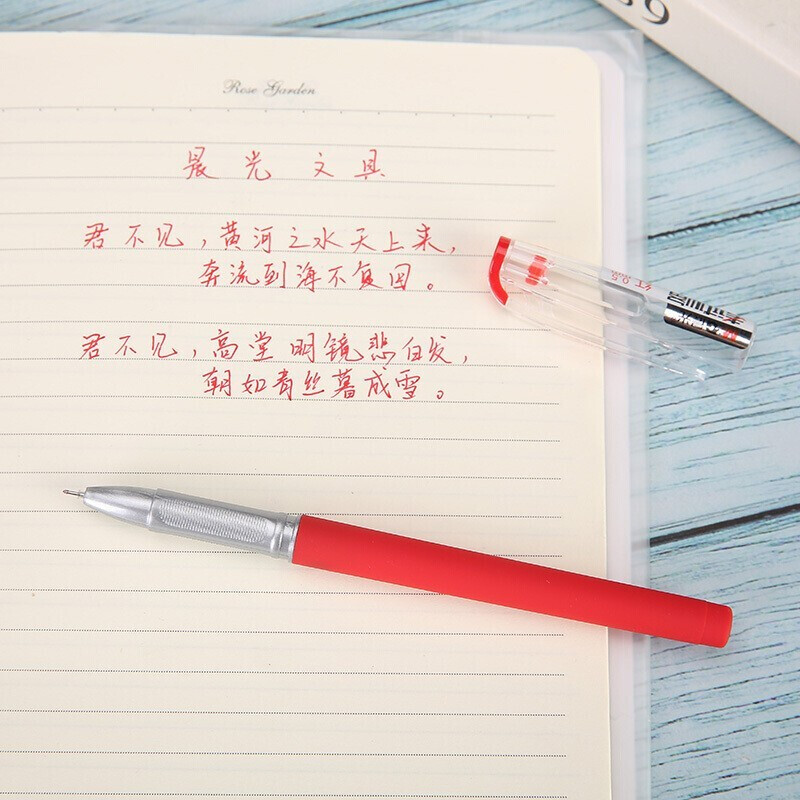 Rose Garden
晨光 文具
君不见,黄河之水天上来,
奔流到海不复回。
君不见,高堂明镜悲白发,
朝如青丝暮成雪。
红 0.5